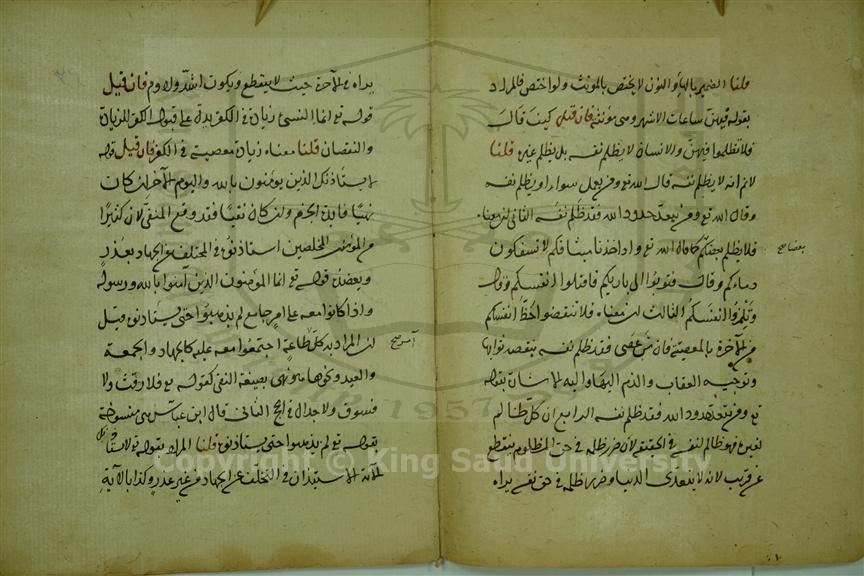 قلنا الضمير بالهاء والنون لا يختص بالمونث ولو اختص فالمراد
بقوله فيهن ساعات الاشهر وهى مؤنثة فان قيل كيف قال
فلا تظلموا فيهن والانسان لا يظلم نفسه بل يظلم غيره قلنا
لانم انه لا يظلم نفسه قال الله تع ومن يعمل سوءا او يظلم نفسه
وقال الله تع ومن يتعد حدود الله فقد ظلم نفسه الثانى ان معناه
فلا يظلم بعضكم كما قال الله تع واذ اخذنا ميثاقكم لا تسفكون
بعضا صح
دماءكم وقال فتوبوا الى بارئكم فاقتلوا انفسكم وقال
ولا تلمزوا انفسكم الثالث ان معناه فلا تنقصوا حظ انفسكم
من الآخرة بالمعصية فان من عصى فقد ظلم نفسه بنقصه ثوابها
وتوجيه العقاب والذم اليها واليه الاشارة بقوله
تع ومن يتعد حدود الله فقد ظلم نفسه الرابع ان كل ظالم
لغيره فهو ظالم لنفسه فى الحقيقة لان ضرر ظلمه فى حق المظلوم ينقطع
عن قريب لانه لا يتعدى الدنيا وضرر ظلمه فى حق نفسه يراه
يراه فى الآخرة حيث لا ينقطع ويكون اشد وادوم فان قيل
قوله تع انما النسئ زيادة فى الكفر يدل على قبول الكفر للزيادة
والنقصان قلنا معناه زيادة معصية فى الكفر فان قيل قوله
لا يستأذنك الذين يؤمنون بالله واليوم الآخر ان كان
نهيا فاين الجزم وان كان نفيا فقد وقع المنفى لان كثيرا
من المؤمنين المخلصين استاذنوه فى التخلف عن الجهاد بعذر
ويعضده قوله تع انما المؤمنون الذين آمنوا بالله ورسوله
واذا كانوا معه على امر جامع لم يذهبوا حتى يستأذنوه وقيل
آمر صح
ان المراد به كل طاعة اجتمعوا معه عليه كالجهاد والجمعة
والعيد ونحوها قلنا هو نهى بصيغة النفى كقوله تع فلا رفث ولا
فسوق ولا جدال فى الحج الثانى قال ابن عباس هى منسوخة
بقوله تع لم يذهبوا حتى يستأذنوه قلنا المراد بقوله تع لا يستأذنك
الآية الاستيذان فى التخلف عن الجهاد من غير عذر وكذا بالآية
Copyright © King Saud University
1957